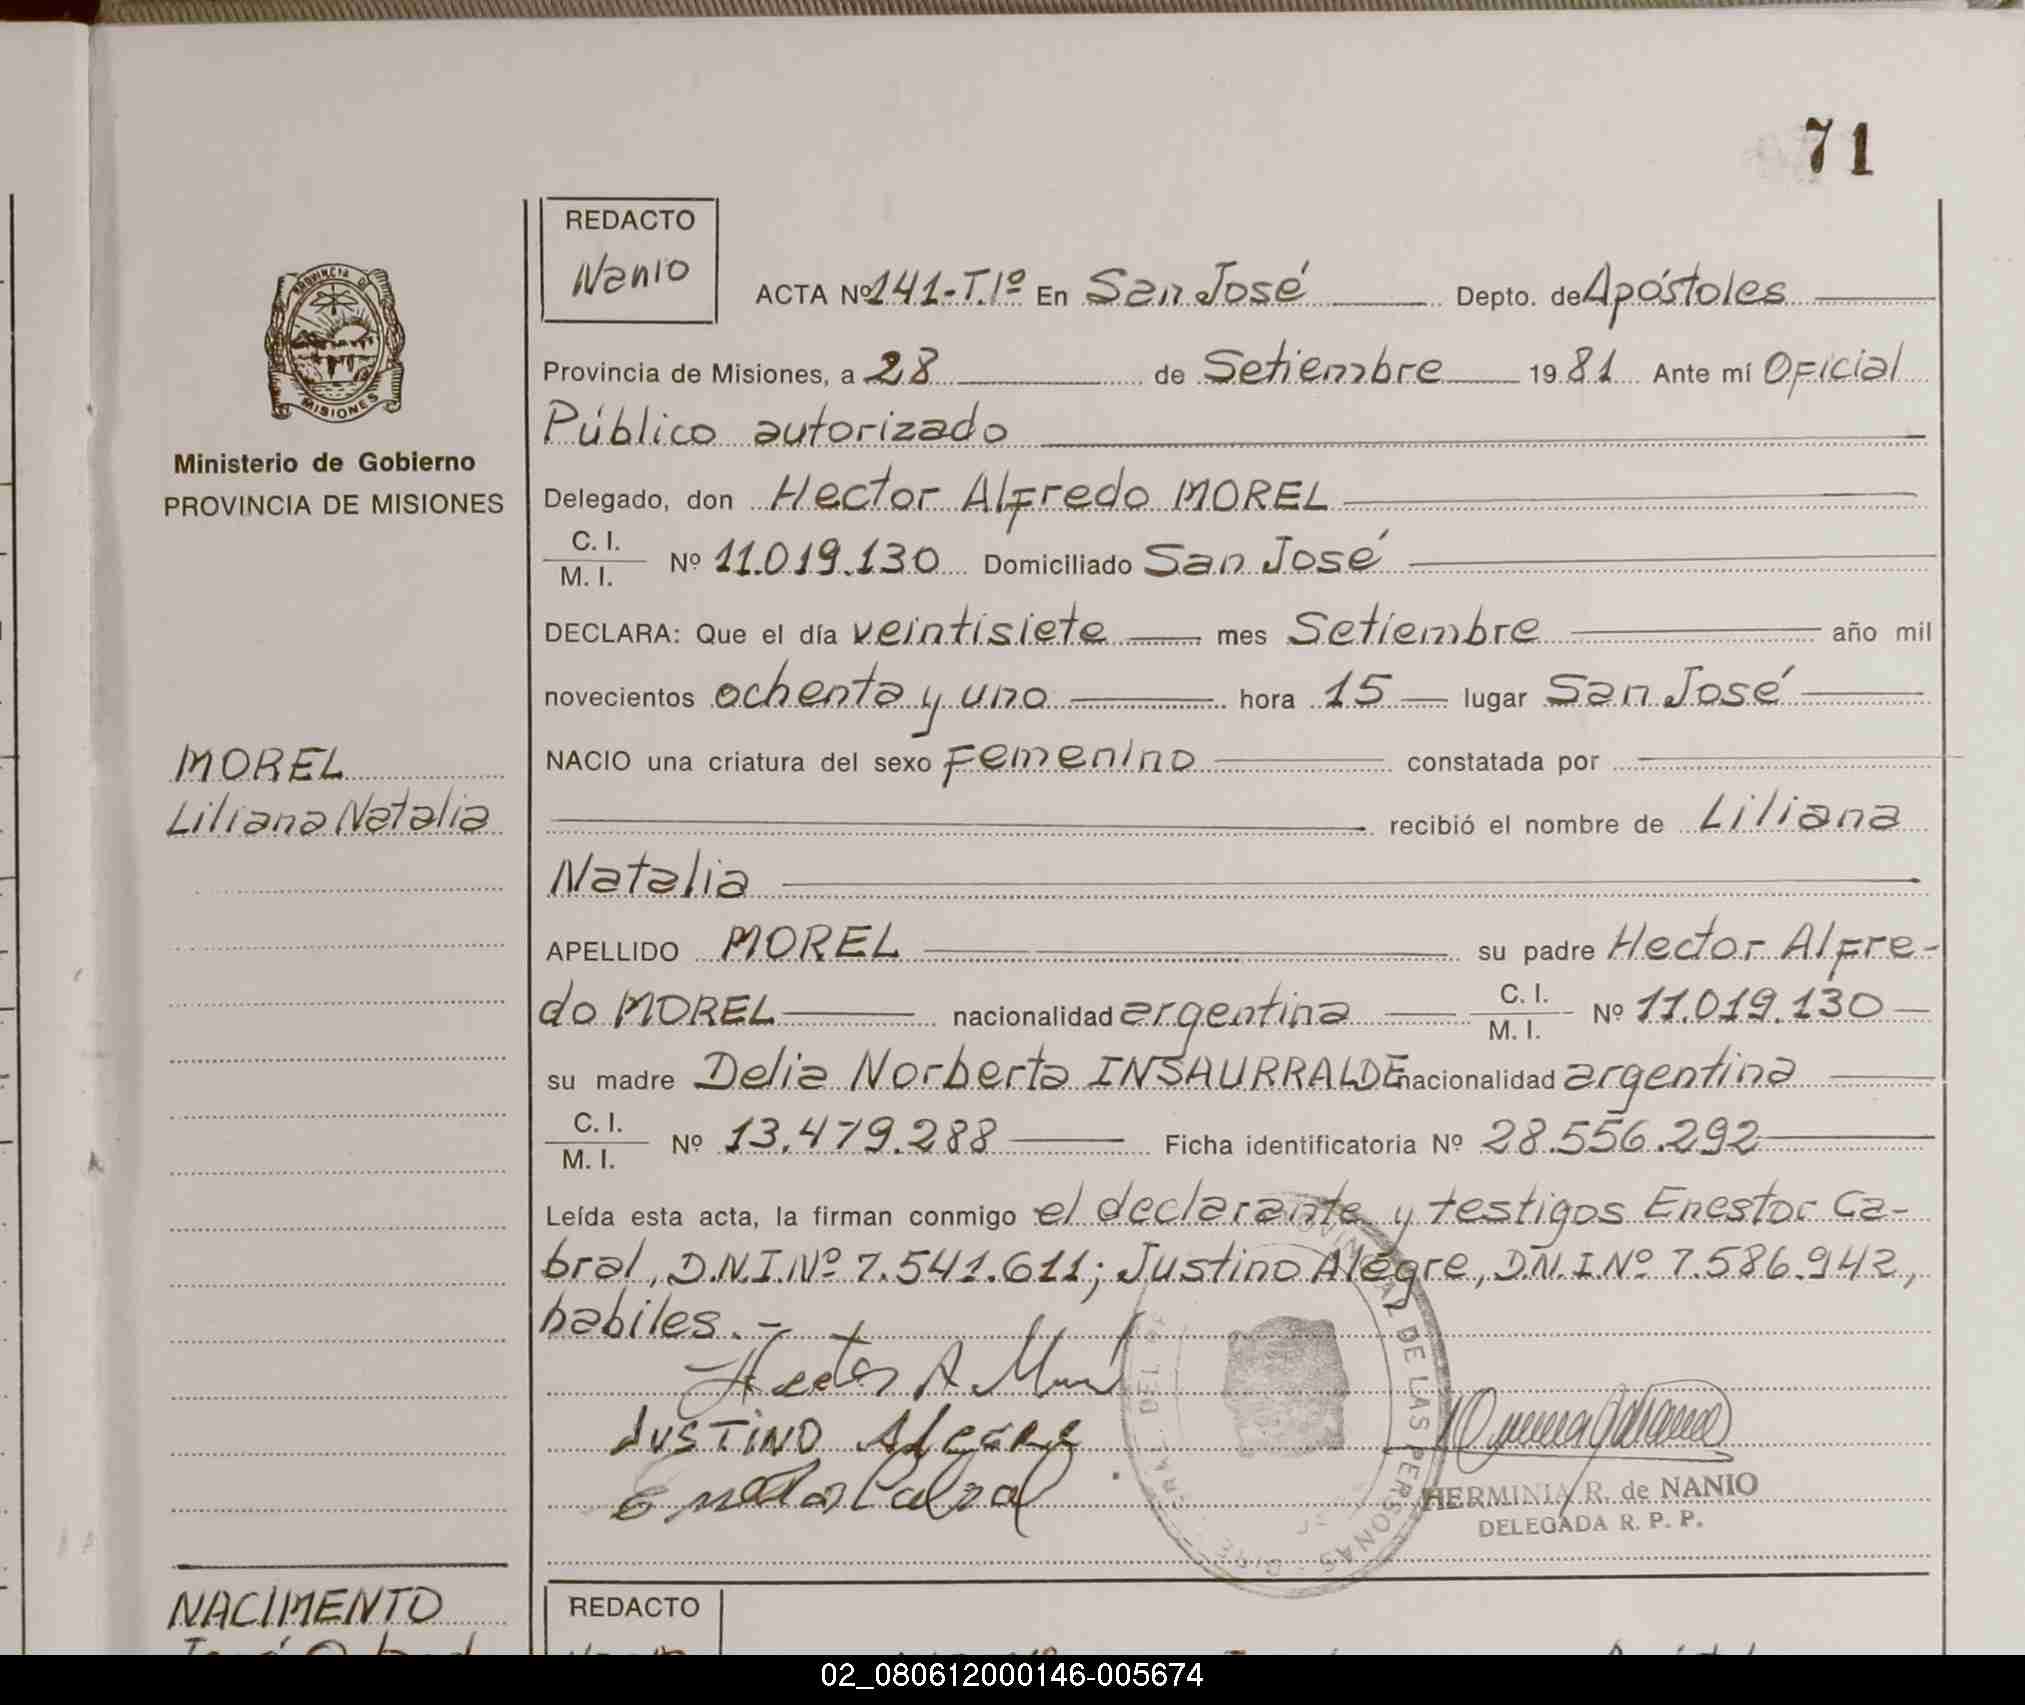 71
REDACTO
Nanio
ACTA Nº 141-T.Iº En San José Depto. de Apóstoles
PROVINCIA DE
MISIONES
Provincia de Misiones, a 28 de Setiembre 1981 Ante mí Oficial
Público autorizado
Ministerio de Gobierno
PROVINCIA DE MISIONES
Delegado, don Hector Alfredo MOREL
C. I.
M. I. Nº 11.019.130 Domiciliado San José
DECLARA: Que el día veintisiete mes Setiembre año mil
novecientos ochenta y uno hora 15 lugar San José
MOREL
Liliana Natalia
NACIO una criatura del sexo Femenino constatada por
recibió el nombre de Liliana
Natalia
APELLIDO MOREL su padre Hector Alfre-
do MOREL nacionalidad argentina C. I. M. I. Nº 11.019.130
su madre Delia Norberta INSAURRALDE nacionalidad argentina
C. I.
M. I. Nº 13.479.288 Ficha identificatoria Nº 28.556.292
Leída esta acta, la firman conmigo el declarante y testigos Enestor Ca-
bral, D.N.I.Nº 7.541.611; Justino Alegre, D.N.I.Nº 7.586.942,
habiles.-
Hector A Morel
JUSTINO Alegre
Enestor Cabral
PROVINCIAL DE LAS PERSONAS
HERMINIA R. de NANIO
DELEGADA R. P. P.
NACIMENTO
REDACTO
02_080612000146-005674